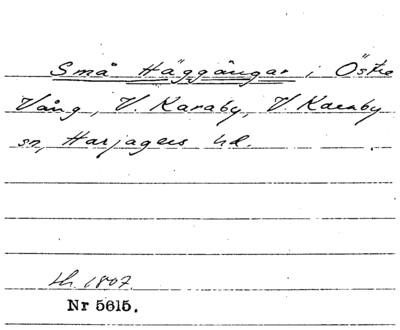 Små Häggängar i Östra
Vång, V. Karaby, V. Karaby
sn, Harjagers hd.
1807
Nr 5615.